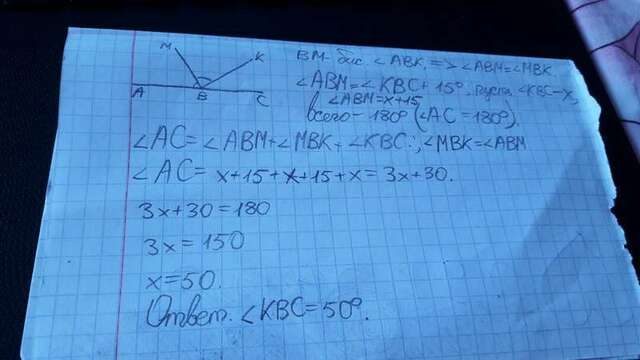 M
K
A
B
C
BM - бис. ∠ABK, => ∠ABM=∠MBK.
∠ABM=∠KBC+15°, пусть ∠KBC-x,
∠ABM=x+15
Всего - 180° (∠AC=180°)
∠AC=∠ABM+∠MBK+∠KBC; ∠MBK=∠ABM
∠AC= x+15+x+15+x=3x+30.
3x+30=180
3x=150
x=50.
Ответ. ∠KBC=50°.